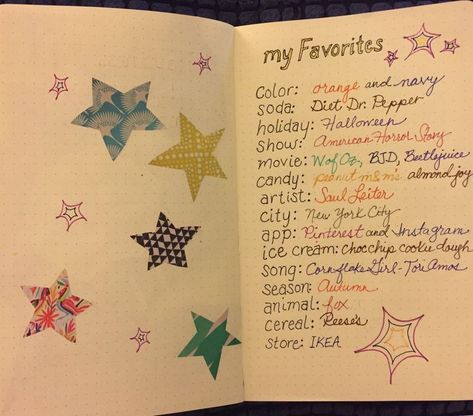 my Favorites
Color: orange and navy
soda: Diet Dr. Pepper
holiday: Halloween
show: American Horror Story
movie: Wof Oz, BJD, Beetlejuice
candy: peanut m&m's, almond joy
artist: Saul Leiter
city: New York City
app: Pinterest and Instagram
ice cream: choc chip cookie dough
song: Cornflake Girl - Tori Amos
season: Autumn
animal: fox
cereal: Reese's
store: IKEA